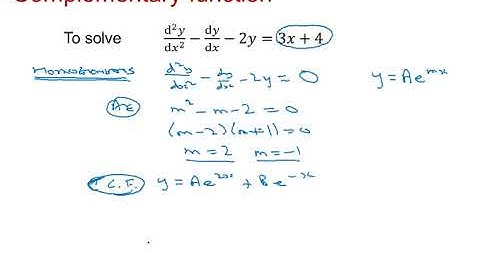 Complementary function
To solve d²y/dx² − dy/dx − 2y = 3x + 4
Homogeneous d²y/dx² − dy/dx − 2y = 0 y = Ae^mx
AE m² − m − 2 = 0
(m−2)(m+1) = 0
m = 2 m = −1
C.F. y = Ae^2x + Be^−x